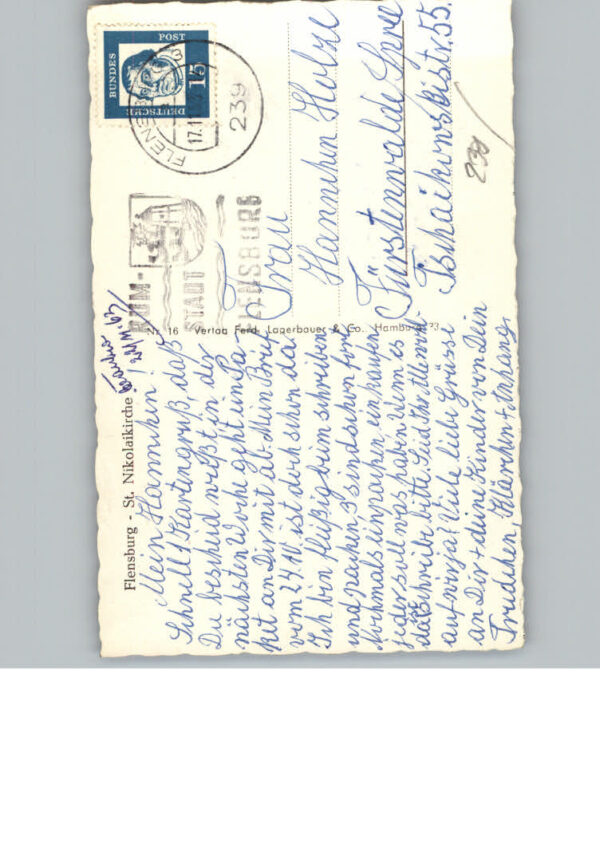 Flensburg - St. Nikolaikirche
Mein Hannchen!
Schnell 1 Kartengruß, daß
Du bescheid weißt, in der
nächsten Woche geht ein Pa-
ket an Dir mit ab. Mein Brief
vom 24.10. ist doch schon da.
Ich bin fleißig beim schreiben
und packen, 3 sind schon fort
Nochmals einpacken einkaufen
jeder soll was haben. Wenn es
da ist schreibe bitte. Seid Ihr alle
auf wir ja! Viele liebe Grüsse
an Dir + deine Kinder von Dein
Trudchen, Klärchen + Anhang.
24/11.63
Nr. 16 Verlag Ferd. Lagerbauer & Co. Hamburg 23
DEUTSCHE
BUNDES
POST
15
FLENSBURG
17.11
239
RUM-
STADT
FLENSBURG
Frau
Hannchen Holze
Fürstenwalde Spree
Tschaikowskistr. 55.
239